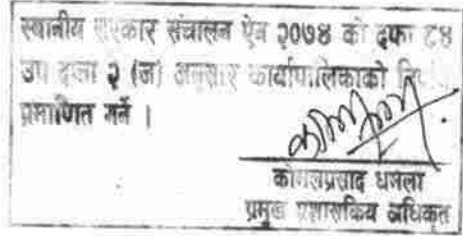 स्थानीय सरकार संचालन ऐन २०७४ को दफा ८४
उप दफा २ (ज) अनुसार कार्यापालिकाको
प्रमाणित गर्ने ।
कोमलप्रसाद धमला
प्रमुख प्रशासकिय अधिकृत